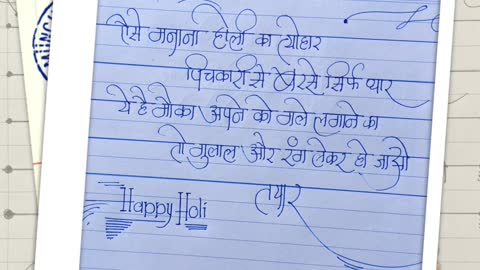 ऐसे मनाना होली का त्योहार
पिचकारी से बरसे सिर्फ प्यार
ये है मौका अपने को गले लगाने का
तो गुलाल और रंग लेकर हो जाओ
तयार
Happy Holi